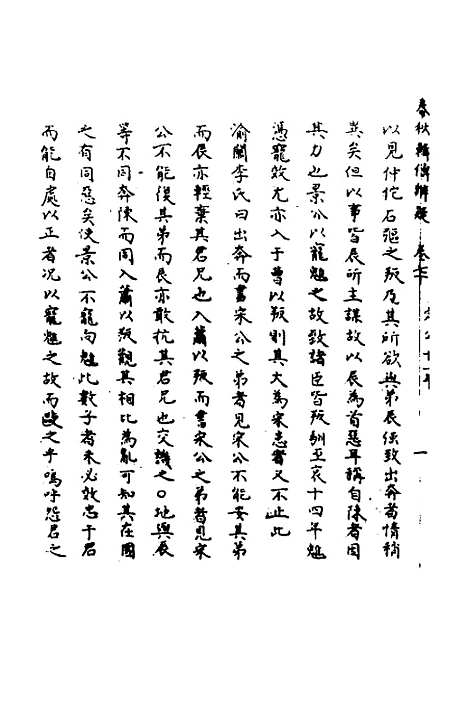 春秋輯傳辨疑 卷七 定公十一年 一
以見仲佗石彄之叛乃其所欲與弟辰强致出奔者情稍
異矣但以事皆辰所主謀故以辰為首惡耳稱自陳者因
其力也景公以寵魋之故致諸臣皆叛馴至哀十四年魋
憑寵效尤亦入于曹以叛則其大為宋患者又不止此
渝關李氏曰出奔而書宋公之弟者見宋公不能安其弟
而辰亦輕棄其君兄也入蕭以叛而書宋公之弟者見宋
公不能復其弟而辰亦敢抗其君兄也交譏之〇地與辰
等不同奔陳而同入蕭以叛觀其相比為亂可知其在國
之有同惡矣使景公不寵向魋比數子者未必效忠于君
而能自處以正者况以寵魋之故而毆之乎嗚呼怨君之